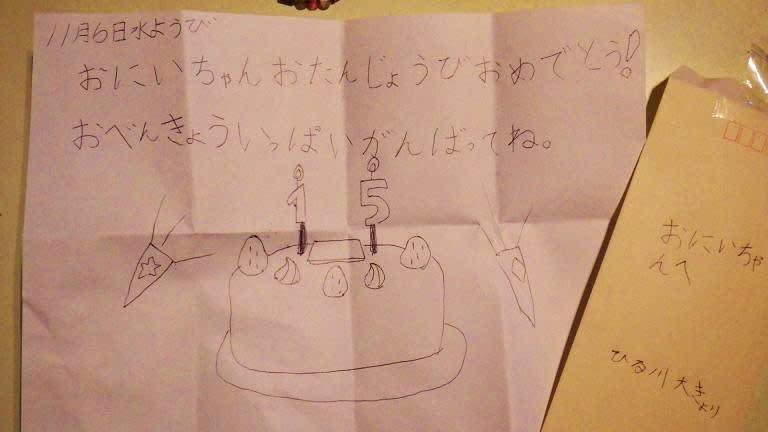 11月6日水ようび
おにいちゃんおたんじょうびおめでとう!
おべんきょういっぱいがんばってね。
15
おにいちゃ
んへ
ひる川大き
より